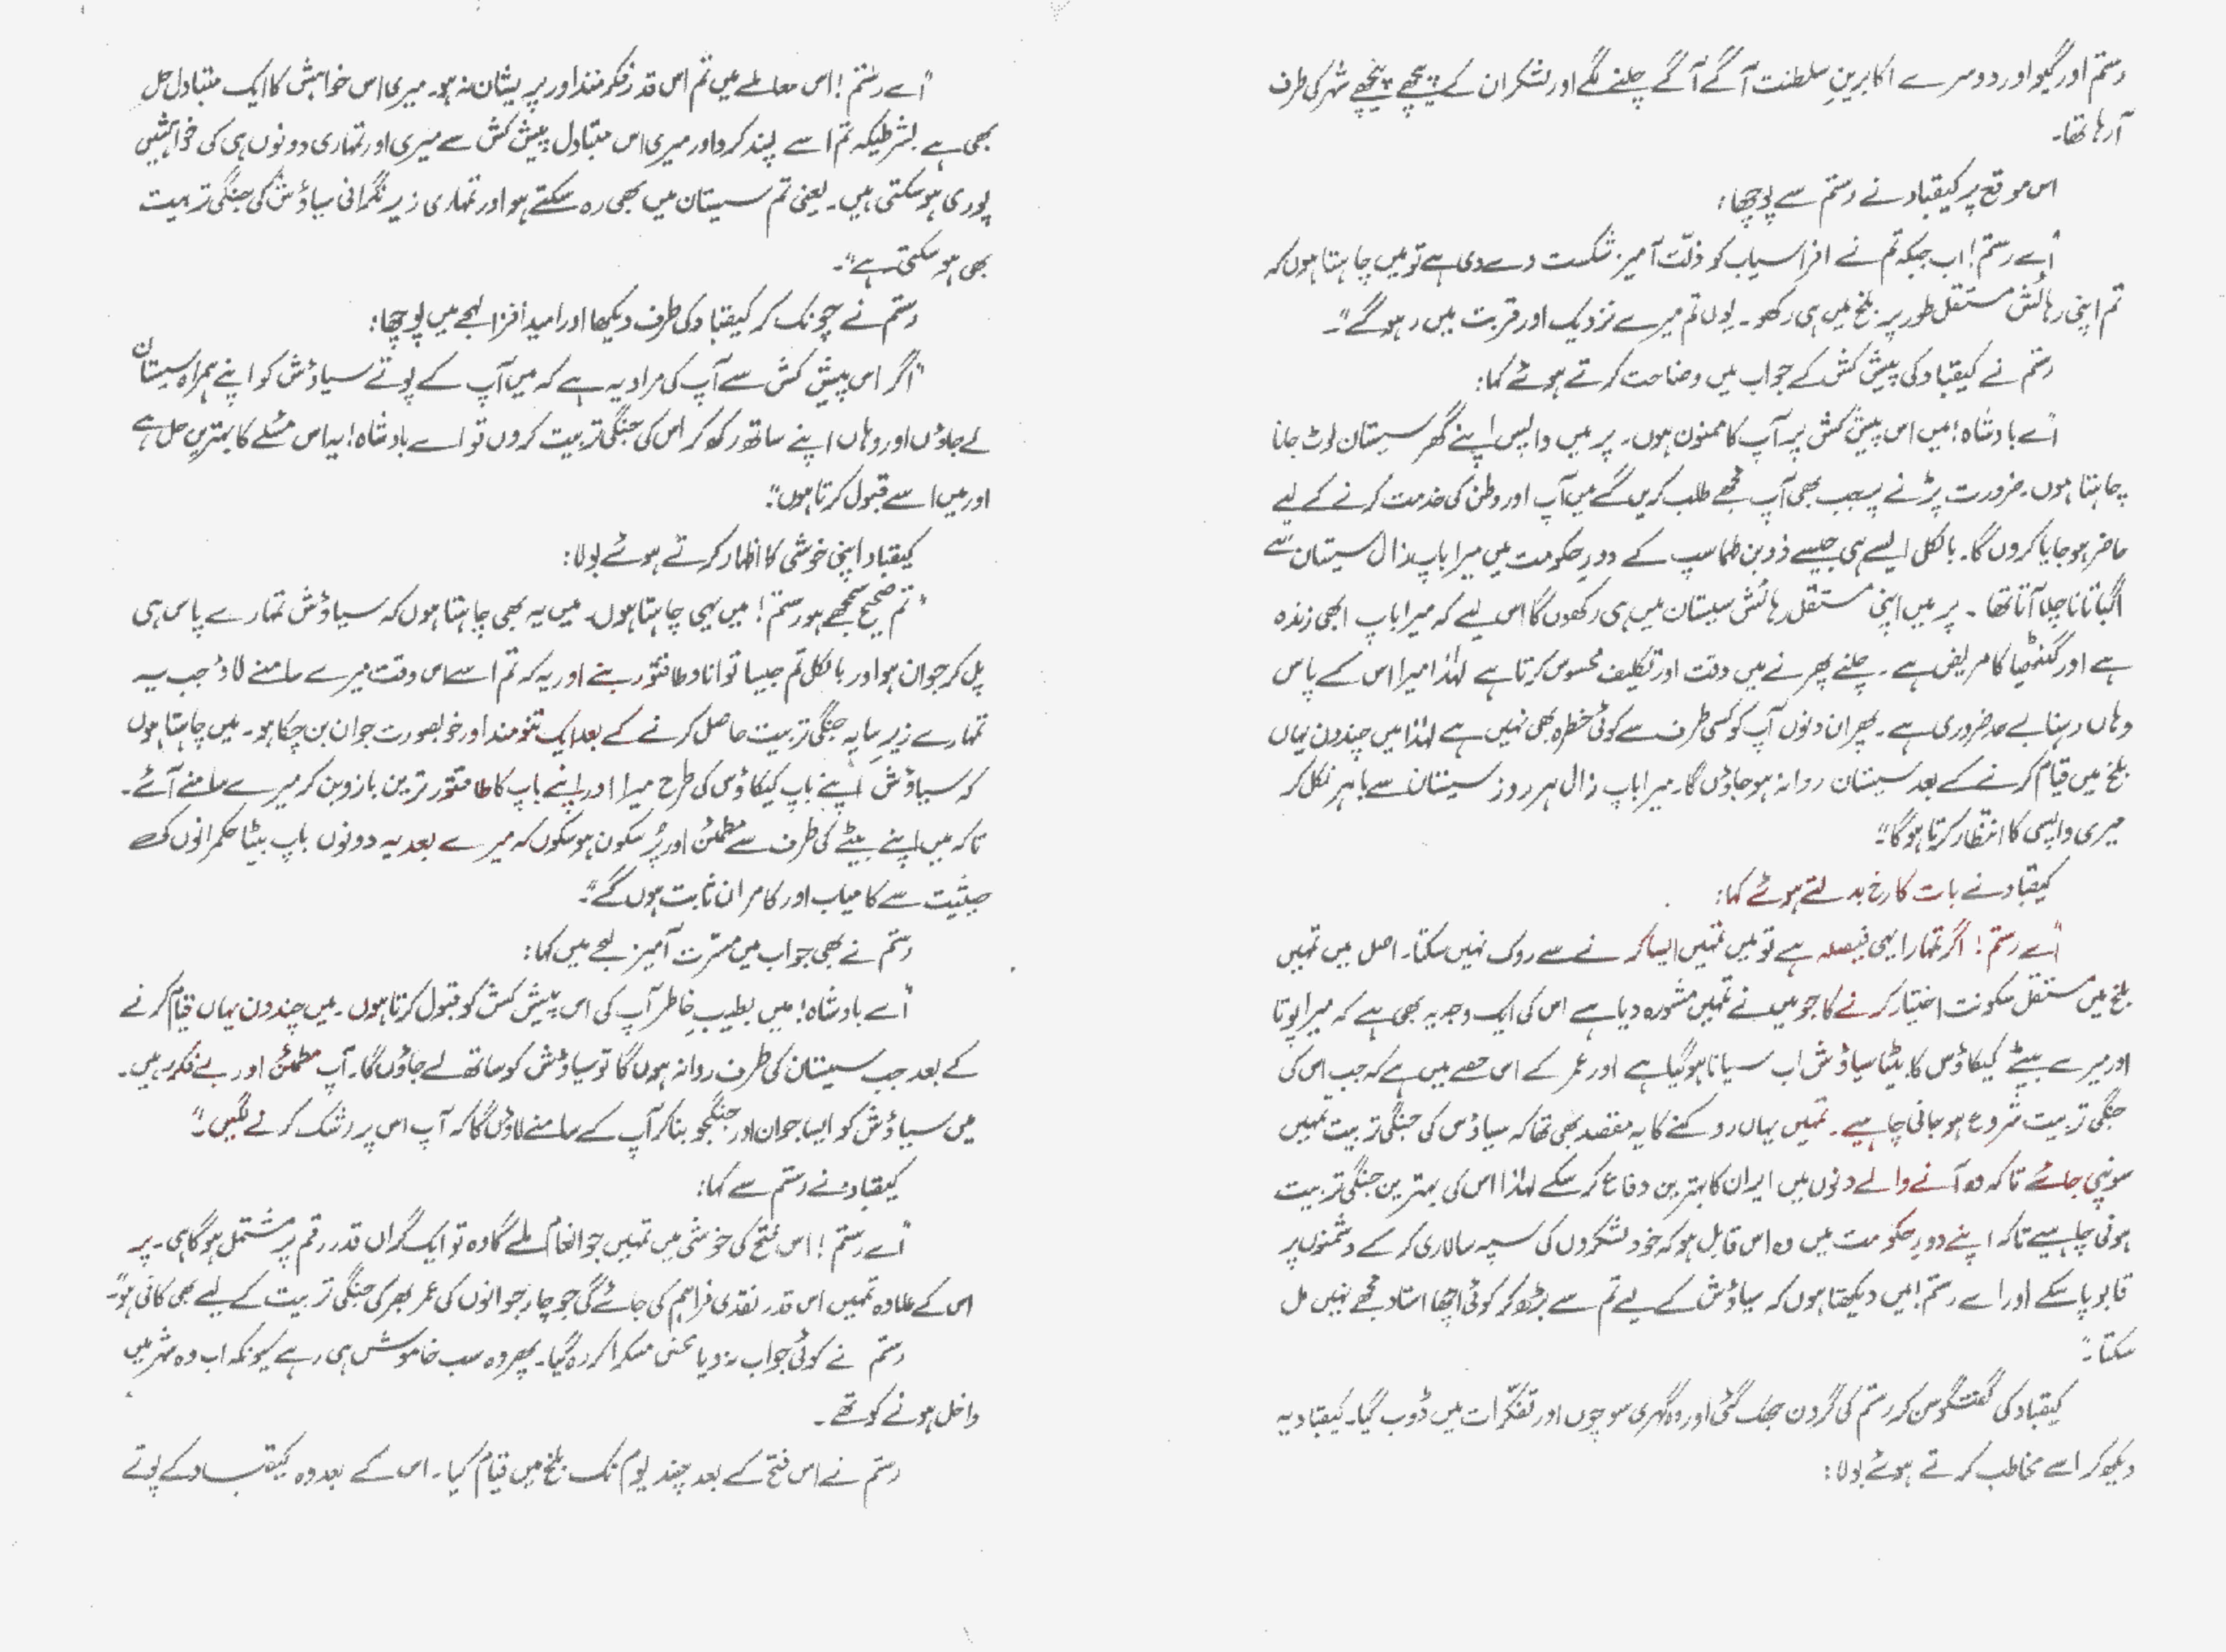 رستم اور گیو اور دوسرے اکابرینِ سلطنت آگے آگے چلنے لگے اور لشکر ان کے پیچھے پیچھے شہر کی طرف
آرہا تھا۔
اس موقع پر کیقباد نے رستم سے پوچھا:
"اے رستم! اب جبکہ تم نے افراسیاب کو ذلّت آمیز شکست دے دی ہے تو میں چاہتا ہوں کہ
تم اپنی رہائش مستقل طور پر بلخ میں ہی رکھو۔ یوں تم میرے نزدیک اور قربت میں رہو گے"۔
رستم نے کیقباد کی پیش کش کے جواب میں وضاحت کرتے ہوئے کہا:
"اے بادشاہ! میں اس پیش کش پر آپ کا ممنون ہوں۔ پر میں واپس اپنے گھر سیستان لوٹ جانا
چاہتا ہوں۔ ضرورت پڑنے پر جب بھی آپ مجھے طلب کریں گے میں آپ اور وطن کی خدمت کرنے کے لیے
حاضر ہو جایا کروں گا۔ بالکل ایسے ہی جیسے زوبن طہماسپ کے دورِ حکومت میں میرا باپ زال سیستان سے
آتا تھا۔ پر میں اپنی مستقل رہائش سیستان میں ہی رکھوں گا اس لیے کہ میرا باپ ابھی زندہ
ہے اور گنٹھیا کا مریض ہے۔ چلنے پھرنے میں دقت اور تکلیف محسوس کرتا ہے لہٰذا میرا اس کے پاس
وہاں رہنا بے حد ضروری ہے۔ پھر ان دنوں آپ کو کسی طرف سے کوئی خطرہ بھی نہیں ہے لہٰذا میں چند دن یہاں
بلخ میں قیام کرنے کے بعد سیستان روانہ ہو جاؤں گا۔ میرا باپ زال ہر روز سیستان سے باہر نکل کر
میری واپسی کا انتظار کرتا ہو گا"۔
کیقباد نے بات کا رخ بدلتے ہوئے کہا:
"اے رستم! اگر تمہارا یہی فیصلہ ہے تو میں تمہیں ایسا کرنے سے روک نہیں سکتا۔ اصل میں تمہیں
بلخ میں مستقل سکونت اختیار کرنے کا جو میں نے تمہیں مشورہ دیا ہے اس کی ایک وجہ یہ بھی ہے کہ میرا پوتا
اور میرے بیٹے کیکاؤس کا بیٹا سیاؤش اب سیانا ہو گیا ہے اور عمر کے اس حصے میں ہے کہ جب اس کی
جنگی تربیت شروع ہو جانی چاہیے۔ تمہیں یہاں روکنے کا یہ مقصد بھی تھا کہ سیاؤس کی جنگی تربیت تمہیں
سونپی جائے تاکہ وہ آنے والے دنوں میں ایران کا بہترین دفاع کر سکے لہٰذا اس کی بہترین جنگی تربیت
ہونی چاہیے تاکہ اپنے دورِ حکومت میں وہ اس قابل ہو کہ خود لشکروں کی سپہ سالاری کر کے دشمنوں پر
قابو پا سکے اور اے رستم! میں دیکھتا ہوں کہ سیاؤش کے لیے تم سے بڑھ کر کوئی اچھا استاد مجھے نہیں مل
سکتا"۔
کیقباد کی گفتگو سن کر رستم کی گردن جھک گئی اور وہ گہری سوچوں اور تفکّرات میں ڈوب گیا۔ کیقباد یہ
دیکھ کر اسے مخاطب کرتے ہوئے بولا:
"اے رستم! اس معاملے میں تم اس قدر فکر مند اور پریشان نہ ہو۔ میری اس خواہش کا ایک متبادل حل
بھی ہے بشرطیکہ تم اسے پسند کرو اور میری اس متبادل پیش کش سے میری اور تمہاری دونوں ہی کی خواہشیں
پوری ہو سکتی ہیں۔ یعنی تم سیستان میں بھی رہ سکتے ہو اور تمہاری زیرِ نگرانی سیاؤش کی جنگی تربیت
بھی ہو سکتی ہے"۔
رستم نے چونک کر کیقباد کی طرف دیکھا اور امید افزا لہجے میں پوچھا:
"اگر اس پیش کش سے آپ کی مراد یہ ہے کہ میں آپ کے پوتے سیاؤش کو اپنے ہمراہ سیستان
لے جاؤں اور وہاں اپنے ساتھ رکھ کر اس کی جنگی تربیت کروں تو اے بادشاہ! یہ اس مسئلے کا بہترین حل ہے
اور میں اسے قبول کرتا ہوں"۔
کیقباد اپنی خوشی کا اظہار کرتے ہوئے بولا:
"تم صحیح سمجھے ہو رستم! میں یہی چاہتا ہوں۔ میں یہ بھی چاہتا ہوں کہ سیاؤش تمہارے پاس ہی
پل کر جوان ہو اور بالکل تم جیسا توانا و طاقتور بنے اور یہ کہ تم اسے اس وقت میرے سامنے لاؤ جب یہ
تمہارے زیرِ سایہ جنگی تربیت حاصل کرنے کے بعد ایک تنومند اور خوبصورت جوان بن چکا ہو۔ میں چاہتا ہوں
کہ سیاؤش اپنے باپ کیکاؤس کی طرح میرا اور اپنے باپ کا طاقتور ترین بازو بن کر میرے سامنے آئے۔
تاکہ میں اپنے بیٹے کی طرف سے مطمئن اور پُر سکون ہو سکوں کہ میرے بعد یہ دونوں باپ بیٹا حکمرانوں کی
حیثیت سے کامیاب اور کامران ثابت ہوں گے"۔
رستم نے بھی جواب میں مسّرت آمیز لہجے میں کہا:
"اے بادشاہ! میں بطیبِ خاطر آپ کی اس پیش کش کو قبول کرتا ہوں۔ میں چند دن یہاں قیام کرنے
کے بعد جب سیستان کی طرف روانہ ہوں گا تو سیاؤش کو ساتھ لے جاؤں گا۔ آپ مطمئن اور بے فکر رہیں۔
میں سیاؤش کو ایسا جوان اور جنگجو بنا کر آپ کے سامنے لاؤں گا کہ آپ اس پر رشک کرنے لگیں"۔
کیقباد نے رستم سے کہا:
"اے رستم! اس فتح کی خوشی میں تمہیں جو انعام ملے گا وہ تو ایک گراں قدر رقم پر مشتمل ہو گا ہی۔ پر
اس کے علاوہ تمہیں اس قدر نقدی فراہم کی جائے گی جو چار جوانوں کی عمر بھر کی جنگی تربیت کے لیے بھی کافی ہو"۔
رستم نے کوئی جواب نہ دیا محض مسکرا کر رہ گیا۔ پھر وہ سب خاموش ہی رہے کیونکہ اب وہ شہر میں
داخل ہونے کو تھے۔
رستم نے اس فتح کے بعد چند یوم تک بلخ میں قیام کیا۔ اس کے بعد وہ کیقباد کے پوتے